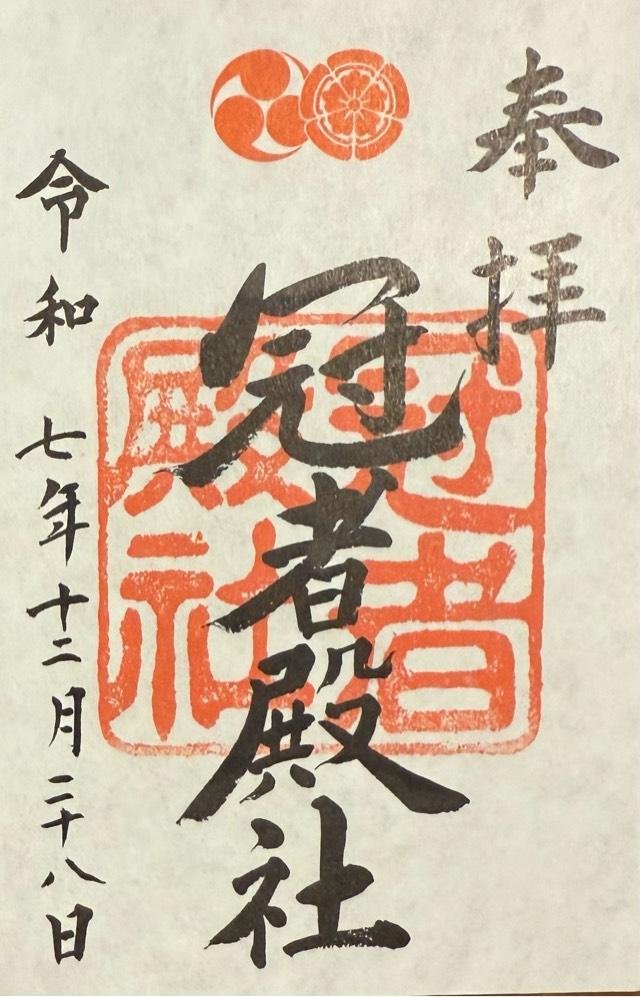 奉拝
冠者殿社
冠者殿社
令和七年十二月二十八日